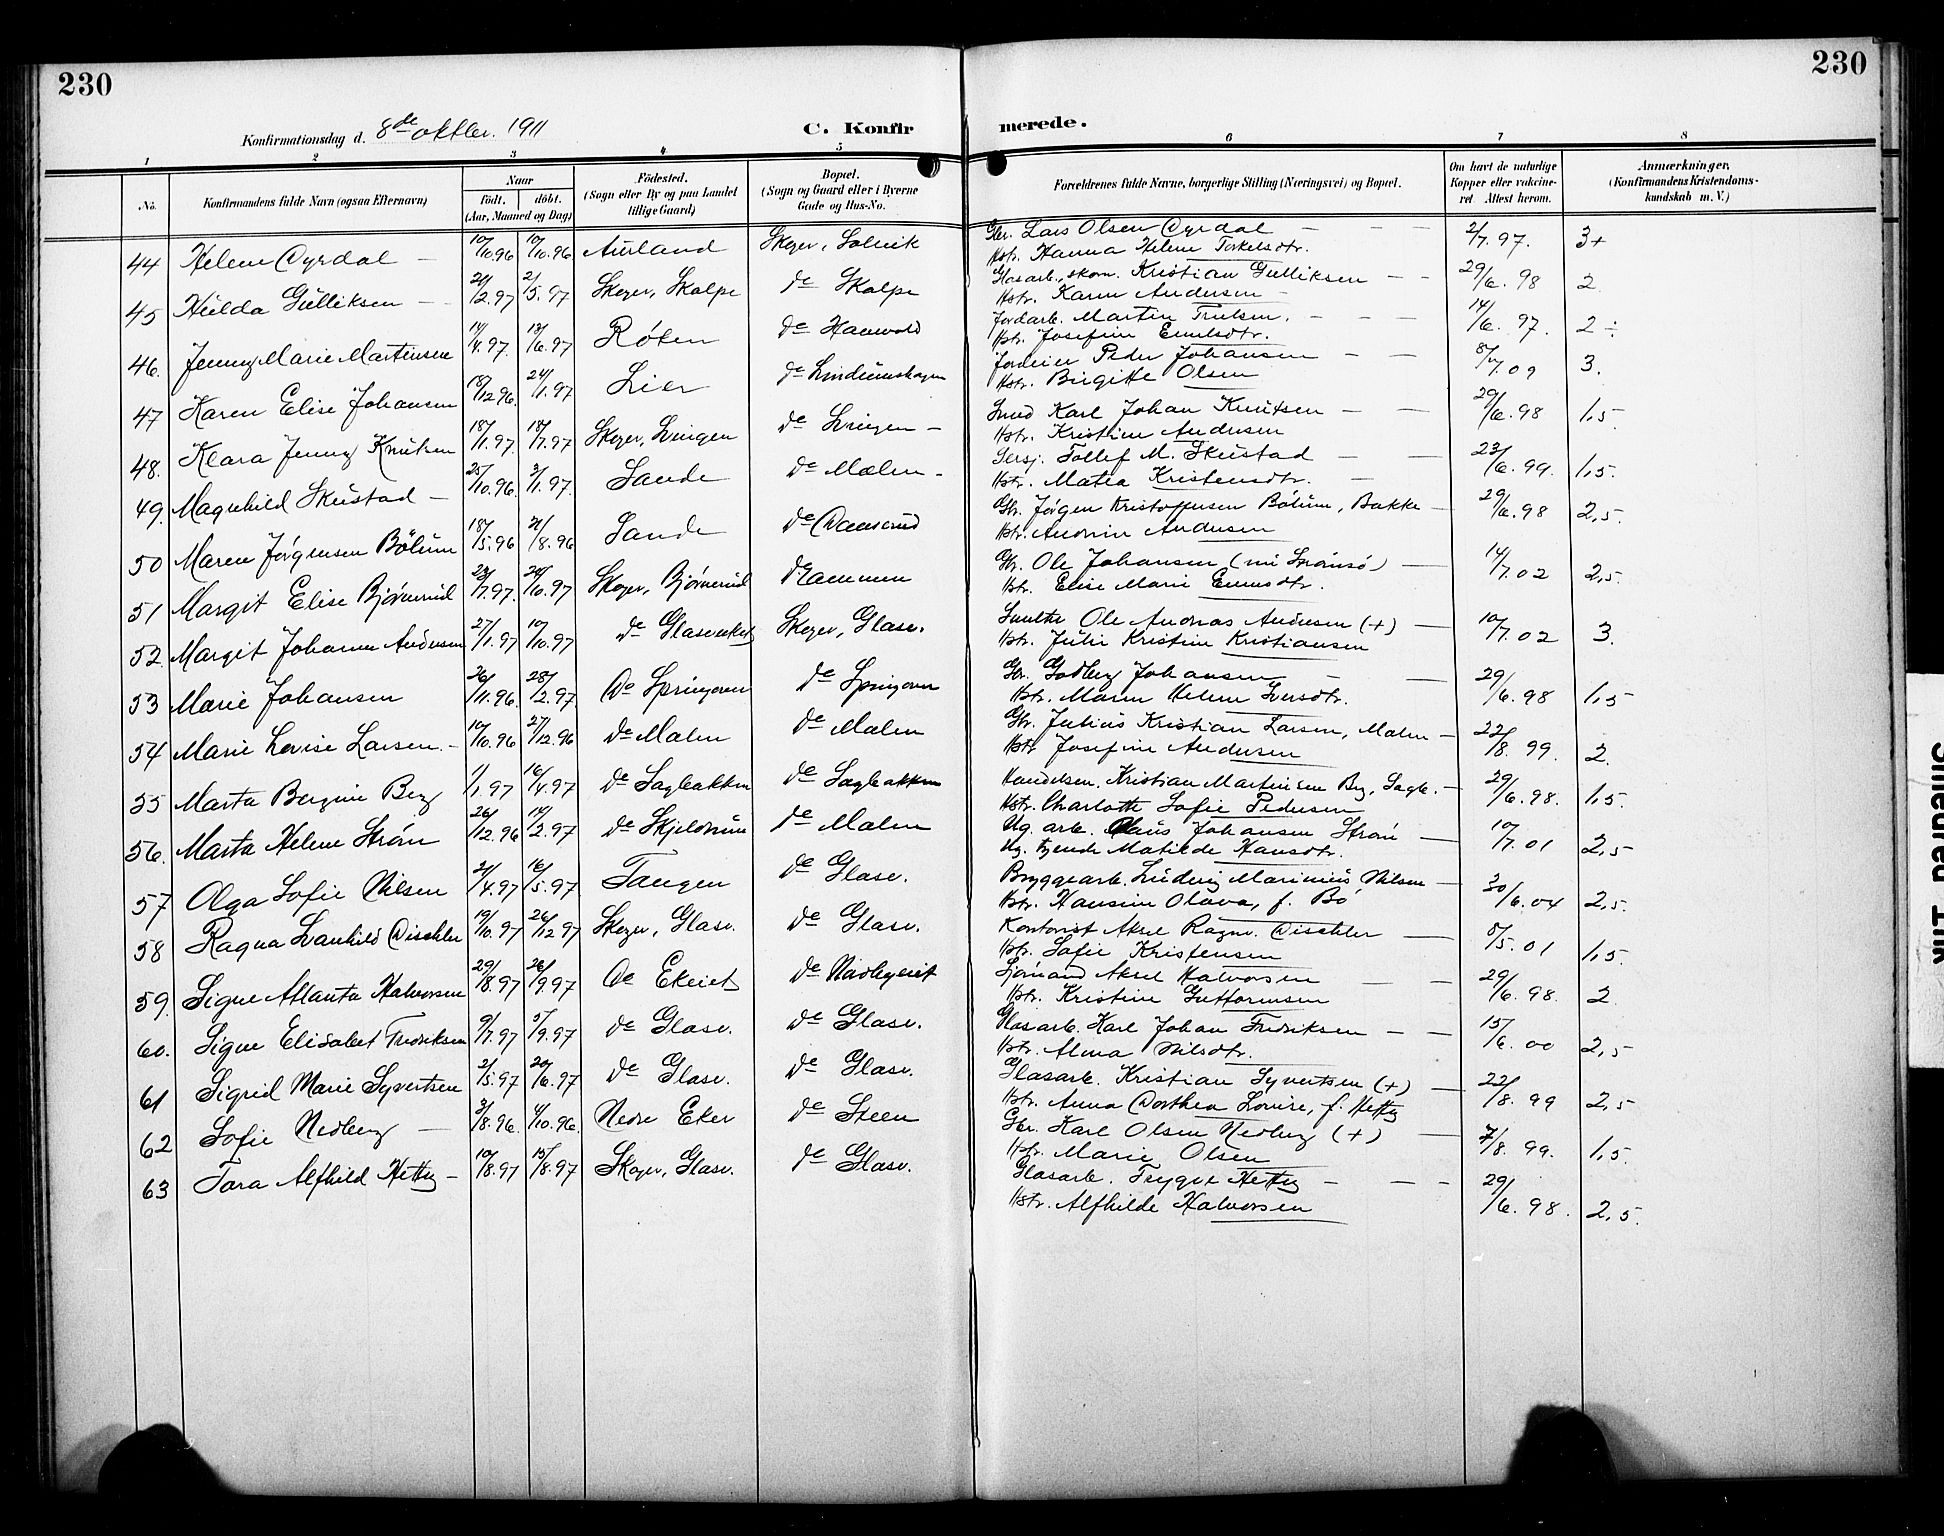 230
230
Konfirmationsdag d. 8de oktbr. 1911
C. Konfirmerede.
1 2 3 4 5 6 7 8
No. Konfirmandens fulde Navn (ogsaa Efternavn) Naar födt. döbt. (Aar, Maaned og Dag) Födested. (Sogn eller By og paa Landet tillige Gaard) Bopæl. (Sogn og Gaard eller i Byerne Gade og Hus-No. Forældrenes fulde Navne, borgerlige Stilling (Næringsvei) og Bopæl. Om havt de naturlige Kopper eller vakcineret Attest herom. Anmærkninger, (Konfirmandens Kristendomskundskab m. V.)
44 Helene Dyrdal 10/10.96 Aurland Skoger, Solvik Gbr. Lars Olsen Dyrdal 2/7.97. 3+
Hstr. Hanna Helene Torkelsdtr.
45 Hulda Gulliksen 2/5.97 Skoger, Skalpe de Skalpe Glasarb., skom. Kristian Gulliksen 29/6.98 2.
Hstr. Karen Andersen
46. Jenny Marie Martinsen 14/4.97. 13/6.97 Röken de Hanevold Jordarb. Martin Trulsen. 14/6.97. 2÷
Hstr. Josefine Emilsdtr.
47 Karen Elise Johansen 18/12.96. 24/1.97 Lier de Lindumskogen Jordeier Peder Johansen 3.
Hstr. Birgitte Olsen
48. Klara Jenny Knutsen 18/1.97. 18/7.97 Skoger, Svingen de Svingen Smed Karl Johan Knutsen 29/6.98 1,5
Hstr. Kristine Andersen
49. Magnhild Skustad 25/10.96. 3/1.97. Sande de Malen Sersj. Tollef M. Skustad 23/6.99. 1,5.
Hstr. Matea Kristensdtr.
50 Maren Jörgensen Bölum 18/5.96 Sande de Damsrud Gbr. Jörgen Kristoffersen Bölum, Bakke 29/6.98 2,5.
Hstr. Andrine Andersen
51 Margit Elise Björnerud 23/7.97. 24/10.97 Skoger, Björnerud Drammen Gbr. Ole Johansen 14/7.02 2,5.
Hstr. Elise Marie
52. Margit Johanne Andersen 27/1.97 10/10.97 de Glasverket Skoger, Glasv. Smelte Ole Andreas Andersen (+) 10/7.02 3.
Hstr. Julie Kristine Kristiansen
53 Marie Johansen 26/11.96. 28/2.97 De Springeren de Springeren Gbr. Godberg Johansen 29/6.98 1,5
Hstr. Maren Helene Iversdtr.
54 Marie Lovise Larsen. 10/10.96 27/12.96 de Malen de Malen Gbr. Julius Kristian Larsen, Malen 22/8.99. 2.
Hstr. Josefine Andersen
55 Marta Bergine Berg 1/1.97 16/4.97 de Sagbakken de Sagbakken Handelsm. Kristian Martinsen Berg, Sagb. 29/6.98. 1,5.
Hstr. Charlotte Sofie Pedersen
56. Marta Helene Ström 26/12.96 14/2.97 de Skjeldrum de Malen Ug. arb. Claus Johansen Ström 10/7.01 2,5
Ug. tjende Matilde Hansdtr.
57 Olga Sofie Nilsen 21/4.97 16/5.97 Tangen de Glasv. Bryggearb. Ludvig Marinius Nilsen 30/6.04 2,5.
Hstr. Hansine Olava, f. Bö
58 Ragna Svanhild Dischler 19/10.97 26/12.97 Skoger, Glasv. de Glasv. Kontorist Aksel Ragnv. Dischler 1,5.
Hstr. Sofie Kristensen
59. Signe Atlanta Halvorsen 29/8.97 26/9.97 De Ekeiet de Nordbyeiet Sjömand Aksel Halvorsen 29/6.98. 2
Hstr. Kristine Guttormsen
60. Signe Elisabet Fredriksen 9/7.97 5/9.97 de Glasv. de Glasv. Glasarb. Karl Johan Fredriksen 15/6.00 2,5
Hstr. Alma Nilsdtr.
61 Sigrid Marie Syvertsen 2/5.97 20/6.97 de Glasv. de Glasv. Glasarb. Kristian Syvertsen (+) 22/8.99 2,5
Hstr. Anna Dorthea Lovise, f. Hetty
62 Sofie Nedberg 3/8.96. 4/10.96. Nedre Eker de Steen Gbr. Karl Olsen Nedberg (+) 7/8.99. 1,5.
Hstr. Marie Olsen
63 Tora Alfhild Hetty 10/8.97 15/8.97 Skoger, Glasv. de Glasv. Glasarb. Trygve Hetty 29/6.98. 2,5.
Hstr. Alfhilde Halvorsen